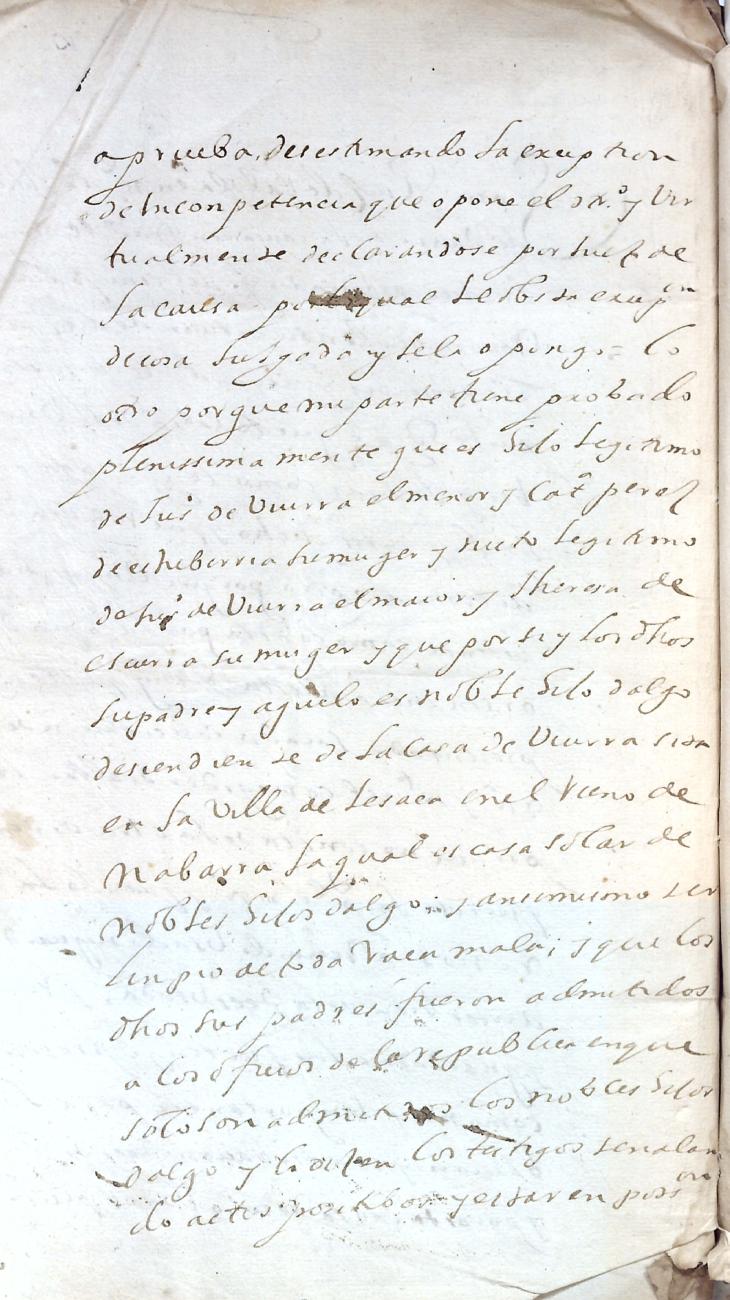 a prueba, desestimando la exception
de Incompetencia que opone el y Vir
tualmente declarandose por Juez de
la causa por lo qual le obsta excepon
de cosa Juzgada y se la opongo = lo
otro porque mi parte tiene probado
plenissima mente que es hijo legitimo
de Jus de Viurra el menor y Cata perez
de echeberria su muger y nieto legitimo
de Jus de Viurra el maior y Theresa de
escurra su muger y que por si y los dhos
su padre y aguelo es noble hijo dalgo
desiendiente de la Casa de Viurra sita
en la Villa de Lesaca en el Reeno de
Nabarra la qual es casa solar de
nobles hijos dalgo, y ansimismo ser
limpio de toda Raca mala; y que los
dhos sus padres fueron admitidos
a los oficios de la republica en que
solo son admitidos los nobles hijos
dalgo y lo dizen los testigos senalan
do actos positibos y estar en posson